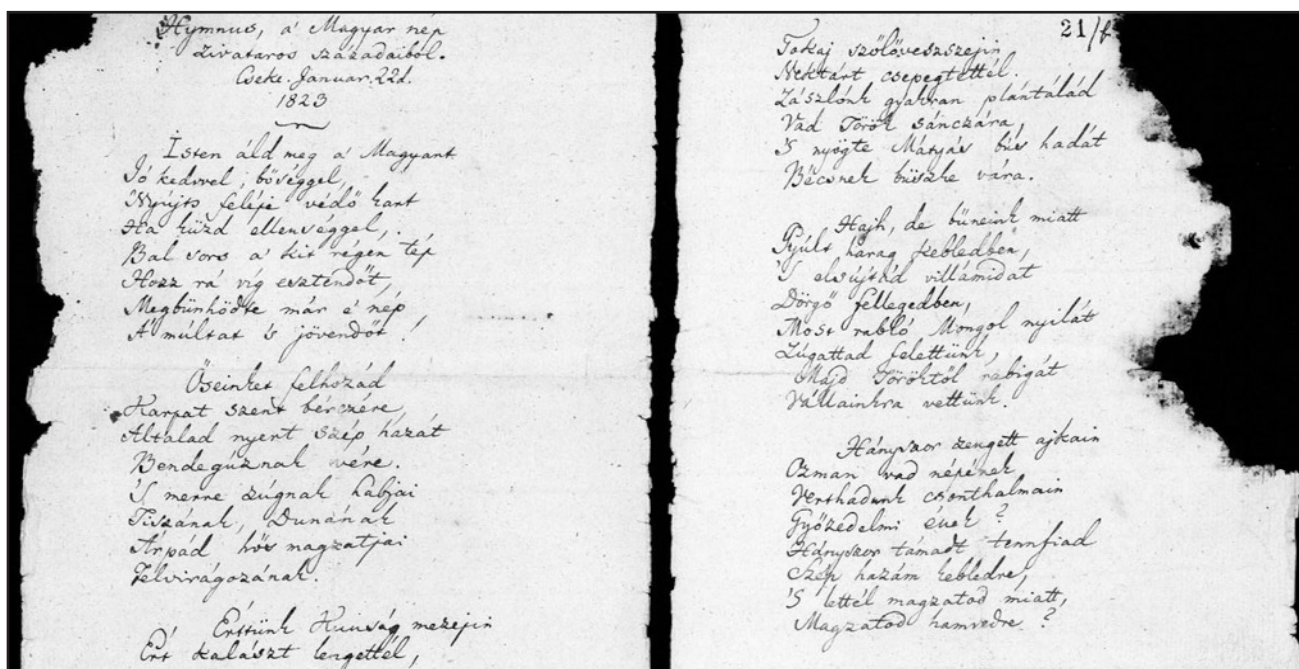 Hymnus, a' Magyar nép
Zivataros századaiból.
Cseke. Januar. 22d.
1823
Isten áld meg a' Magyart
Jó kedvvel, bőséggel,
Nyújts feléje védő kart
Ha küzd ellenséggel,
Bal sors a' kit régen tép
Hozz rá víg esztendőt,
Megbűnhődte már e' nép
A' múltat 's jövendőt.
Őseinket felhozád
Karpat szent bérczére,
Általad nyert szép hazát
Bendegúznak vére.
'S merre zúgnak habjai
Tiszának, Dunának
Árpád hős magzatjai
Felvirágozának.
Érttünk Kunság mezejin
Ért kalászt lengettél,
21/f
Tokaj szőlővesszejin
Nektárt csepegtettél.
Zászlónk gyakran plántálád
Vad Török sánczára,
'S nyögte Mátyás bús hadát
Bécsnek büszke vára.
Hajh, de bűneink miatt
Gyúlt harag kebledben,
'S elsújtád villámidat
Dörgő fellegedben,
Most rabló Mongol nyilát
Zúgattad felettünk,
Majd Töröktől rabigát
Vállainkra vettünk.
Hányszor zengett ajkain
Ozman vad népének
Vert hadunk csonthalmain
Győzedelmi ének?
Hányszor támadt tennfiad
Szép hazám kebledre,
'S lettél magzatod miatt,
Magzatod hamvedre?